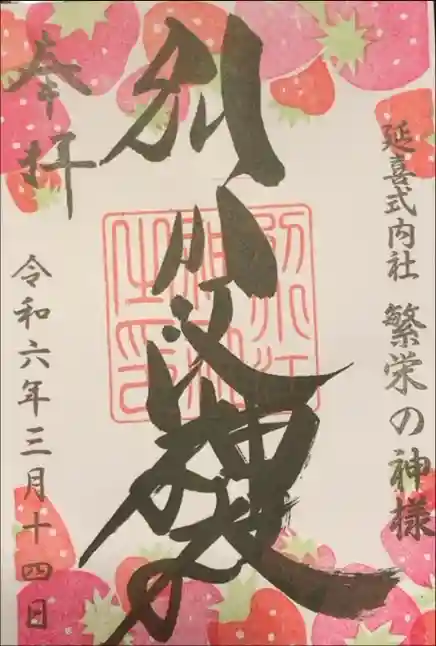 延喜式内社 繁栄の神様
別小江神社
奉拝
令和六年三月十四日